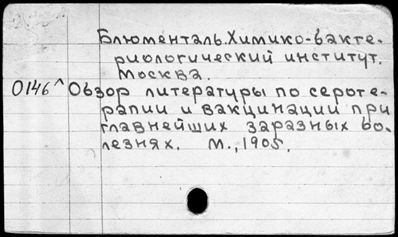 Блюменталь. Химико-вакте-
риологический институт.
Москва.
0146^ Обзор литературы по сероте-
рапии и вакцинации при
главнейших заразных бо-
лезнях. М., 1905.